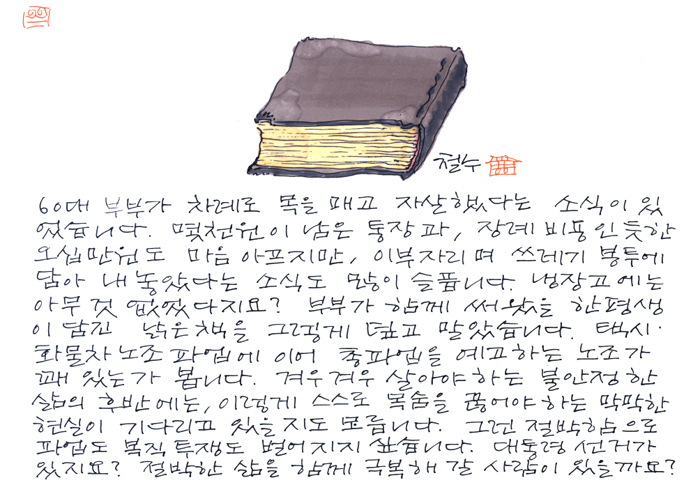 철수
60대 부부가 차례로 목을 매고 자살했다는 소식이 있
었습니다. 몇천원이 남은 통장과, 장례비용인듯한
오십만원도 마음 아프지만, 이부자리며 쓰레기 봉투에
담아 내놓았다는 소식도 많이 슬픕니다. 냉장고에는
아무것 없었다지요? 부부가 함께 써왔을 한평생
이 담긴 낡은 책을 그렇게 덮고 말았습니다. 택시·
화물차노조 파업에 이어 총파업을 예고하는 노조가
꽤 있는가 봅니다. 겨우겨우 살아야하는 불안정한
삶의 후반에는, 이렇게 스스로 목숨을 끊어야하는 막막한
현실이 기다리고 있을지도 모릅니다. 그런 절박함으로
파업도 복직투쟁도 벌어지지 싶습니다. 대통령 선거가
있지요? 절박한 삶을 함께 극복해 갈 사람이 있을까요?